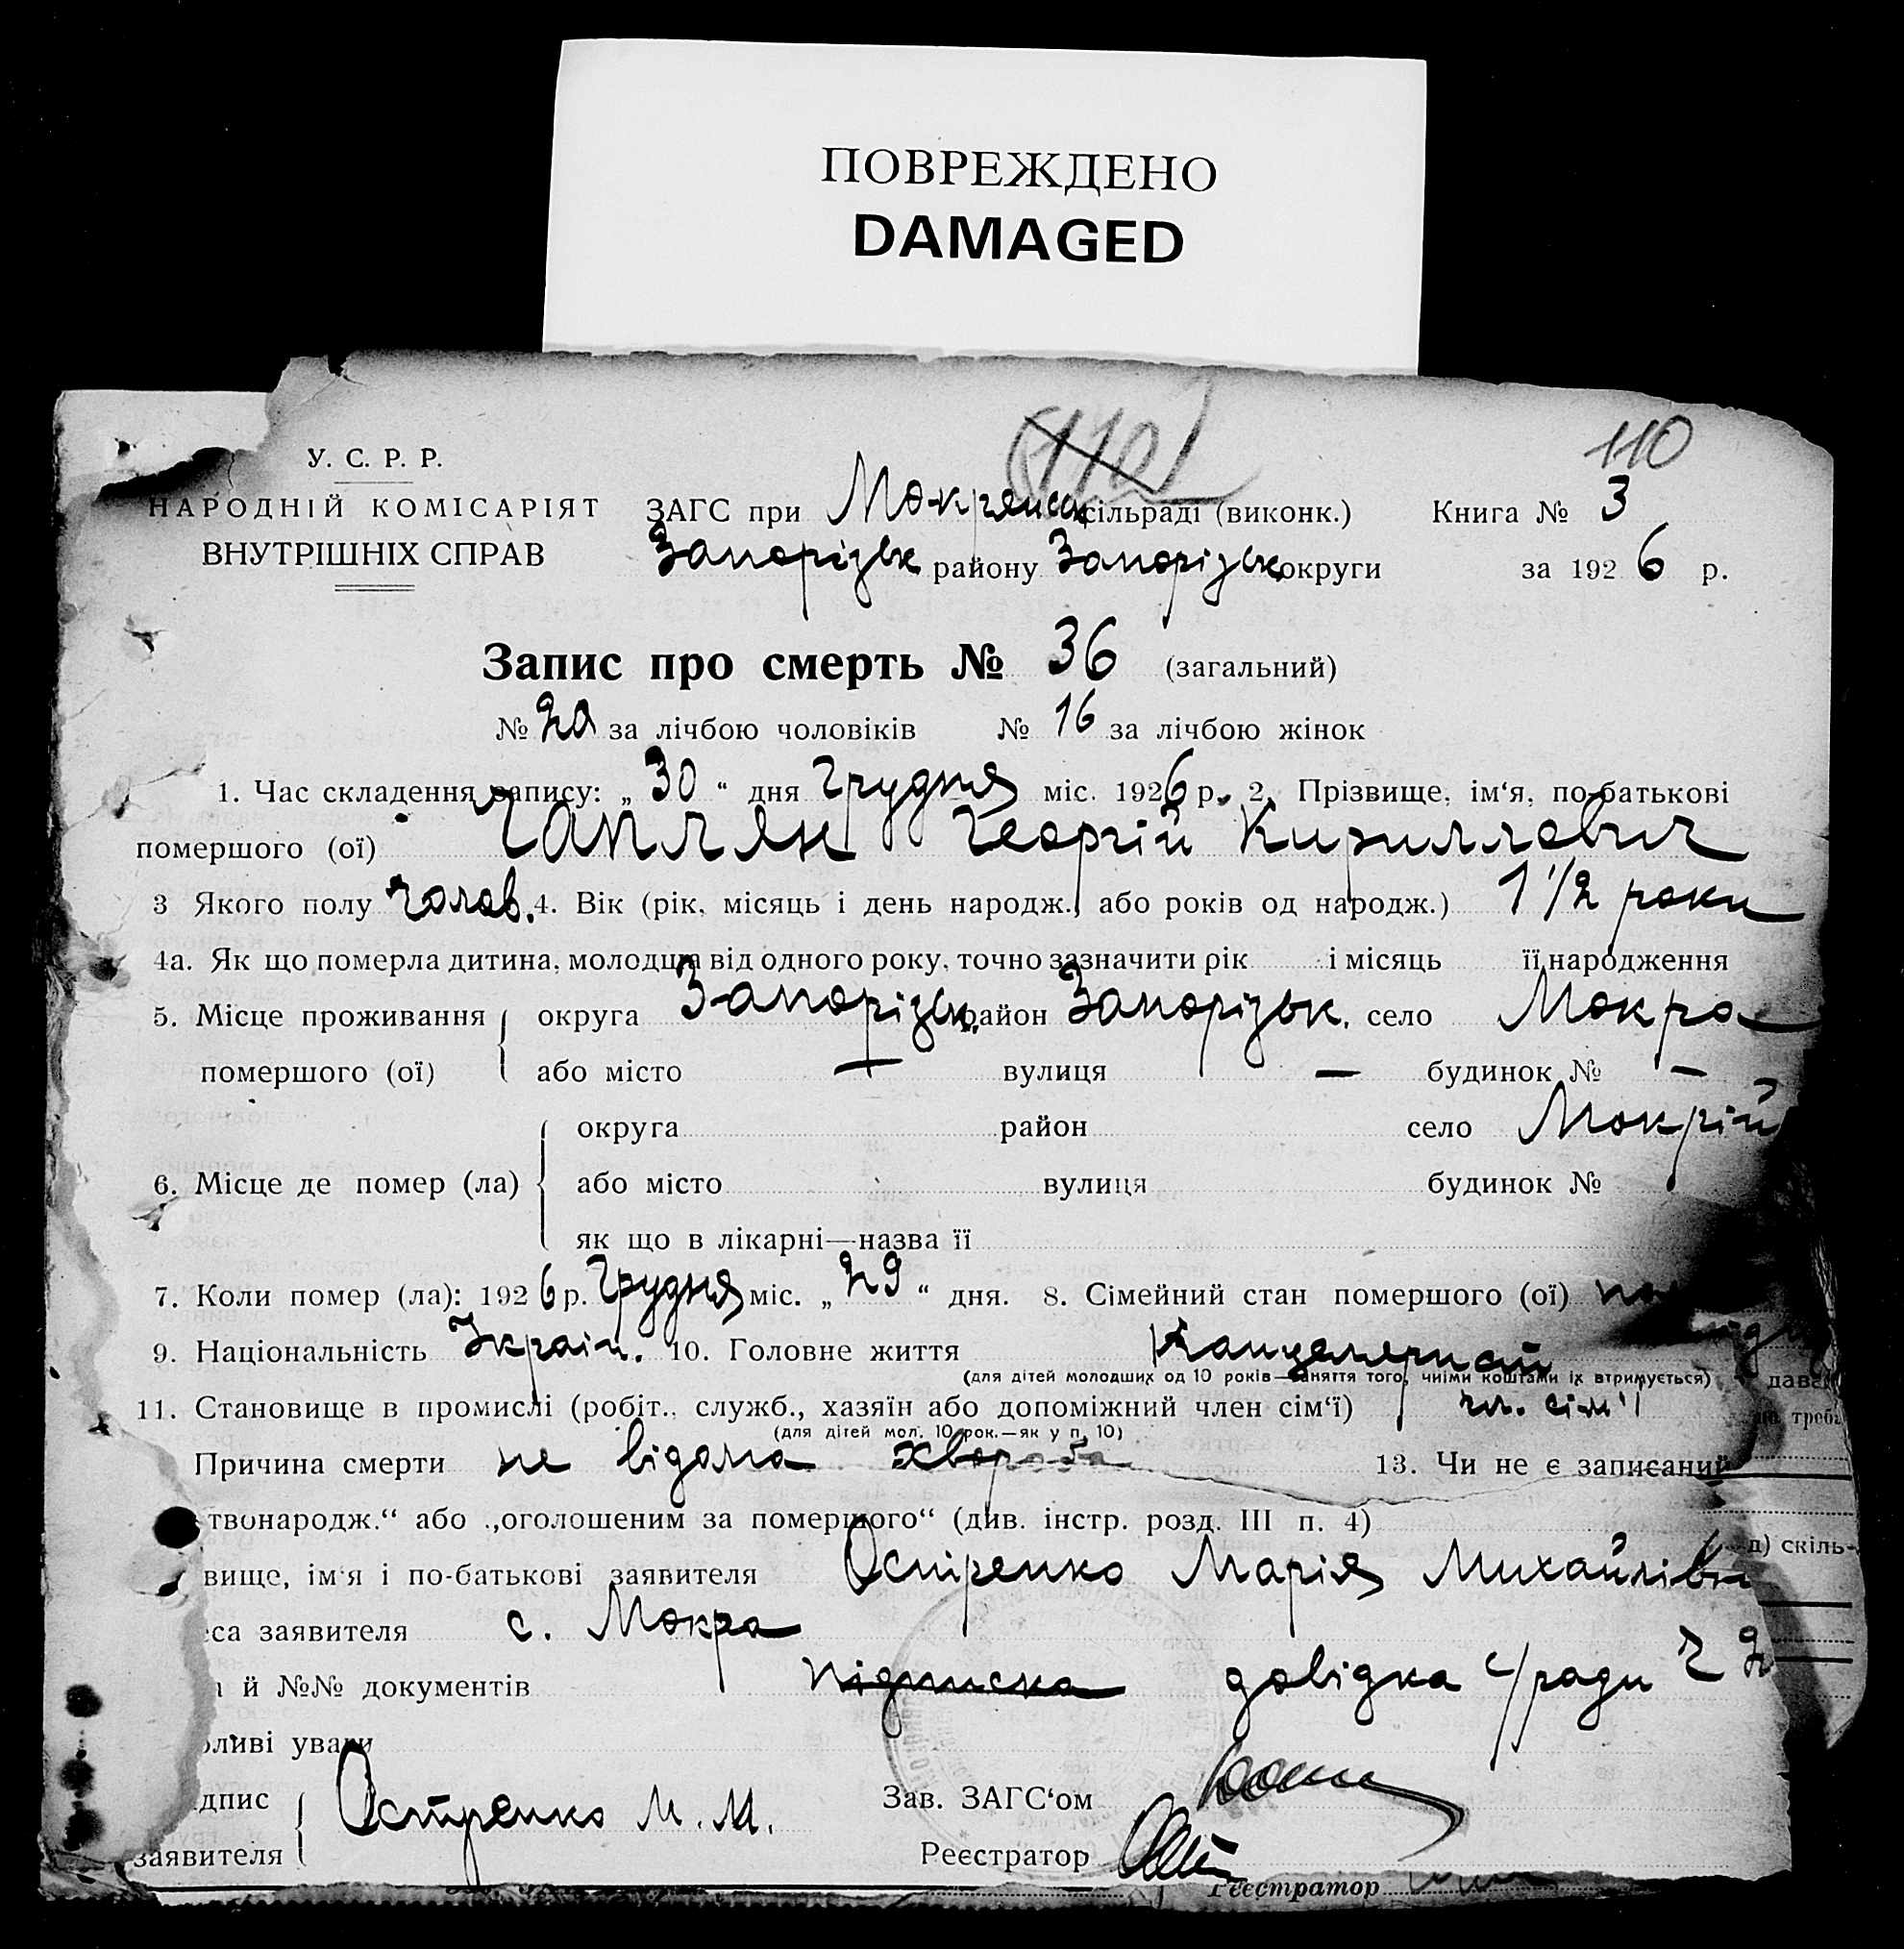 ПОВРЕЖДЕНО
DAMAGED
110
110
У. С. Р. Р.
НАРОДНІЙ КОМІСАРІЯТ ЗАГС при Мокрянськ сільраді (виконк.) Книга № 3
ВНУТРІШНІХ СПРАВ Запорізьк району Запорізьк округи за 1926 р.
Запис про смерть № 36 (загальний)
№ 20 за лічбою чоловіків № 16 за лічбою жінок
1. Час складення запису: „30“ дня Грудня міс. 1926 р. 2. Прізвище, ім‘я, по-батькові
помершого (ої) Чаплян Георгій Кириллович
3 Якого полу чолов. 4. Вік (рік, місяць і день народж., або років од народж.) 1 1/2 роки
4а. Як що померла дитина, молодша від одного року, точно зазначити рік і місяць її народження
5. Місце проживання округа Запорізьк. район Запорізьк. село Мокра
помершого (ої) або місто — вулиця — будинок № —
округа район село Мокрій
6. Місце де помер (ла) або місто вулиця будинок №
як що в лікарні—назва її
7. Коли помер (ла): 1926 р. Грудня міс. „29“ дня. 8. Сімейний стан помершого (ої)
9. Національність Україн. 10. Головне життя
(для дітей молодших од 10 років—заняття того, чиїми коштами їх втримується)
11. Становище в промислі (робіт., служб., хазяїн або допоміжний член сім‘ї) чл. сім'ї
(для дітей мол. 10 рок.—як у п. 10)
Причина смерти не відома хвороба 13. Чи не є записаний
твонародж.“ або „оголошеним за помершого“ (див. інстр. розд. III п. 4)
д) скіль-
вище, ім‘я і по-батькові заявителя Остренко Марія Михайлівн
еса заявителя с. Мокра
й №№ документів підписка довідка с/ради
ливі уваги
дпис Остренко М. М. Зав. ЗАГС‘ом
заявителя Реєстратор
Реєстратор